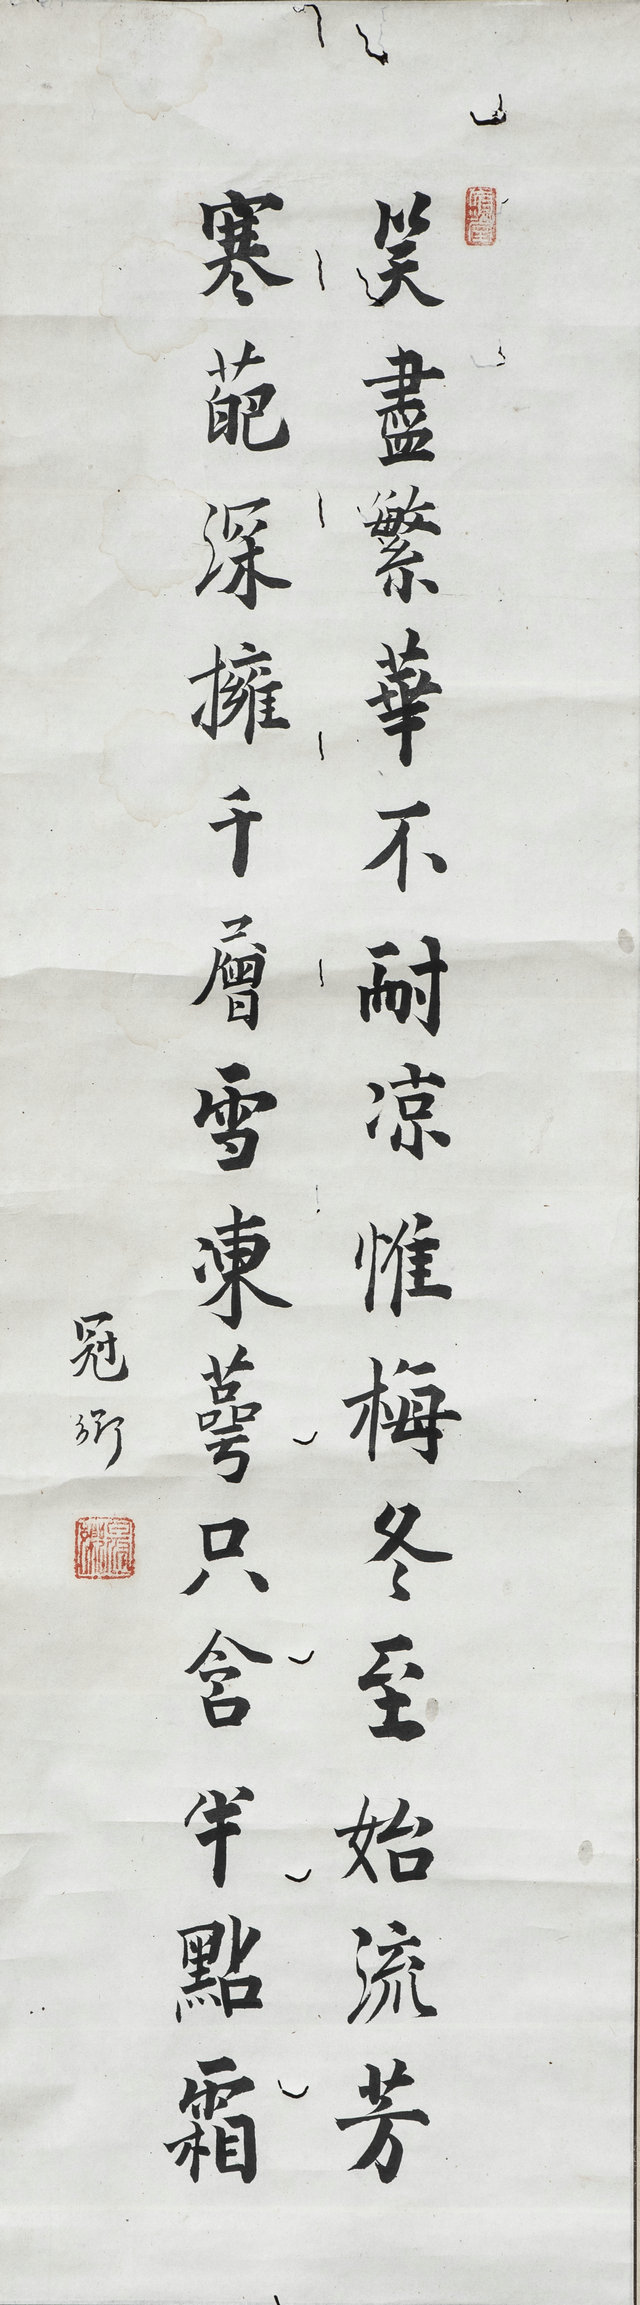 笑盡繁華不耐凉惟梅冬至始流芳
寒葩深擁千層雪凍萼只含半點霜
冠衡